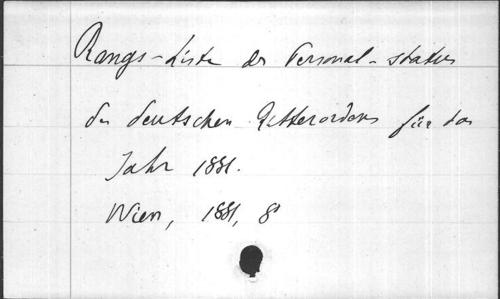 Rangs-Liste des Personal-status
des deutschen Ritterordens für das
Jahr 1881.
Wien, 1881, 8°